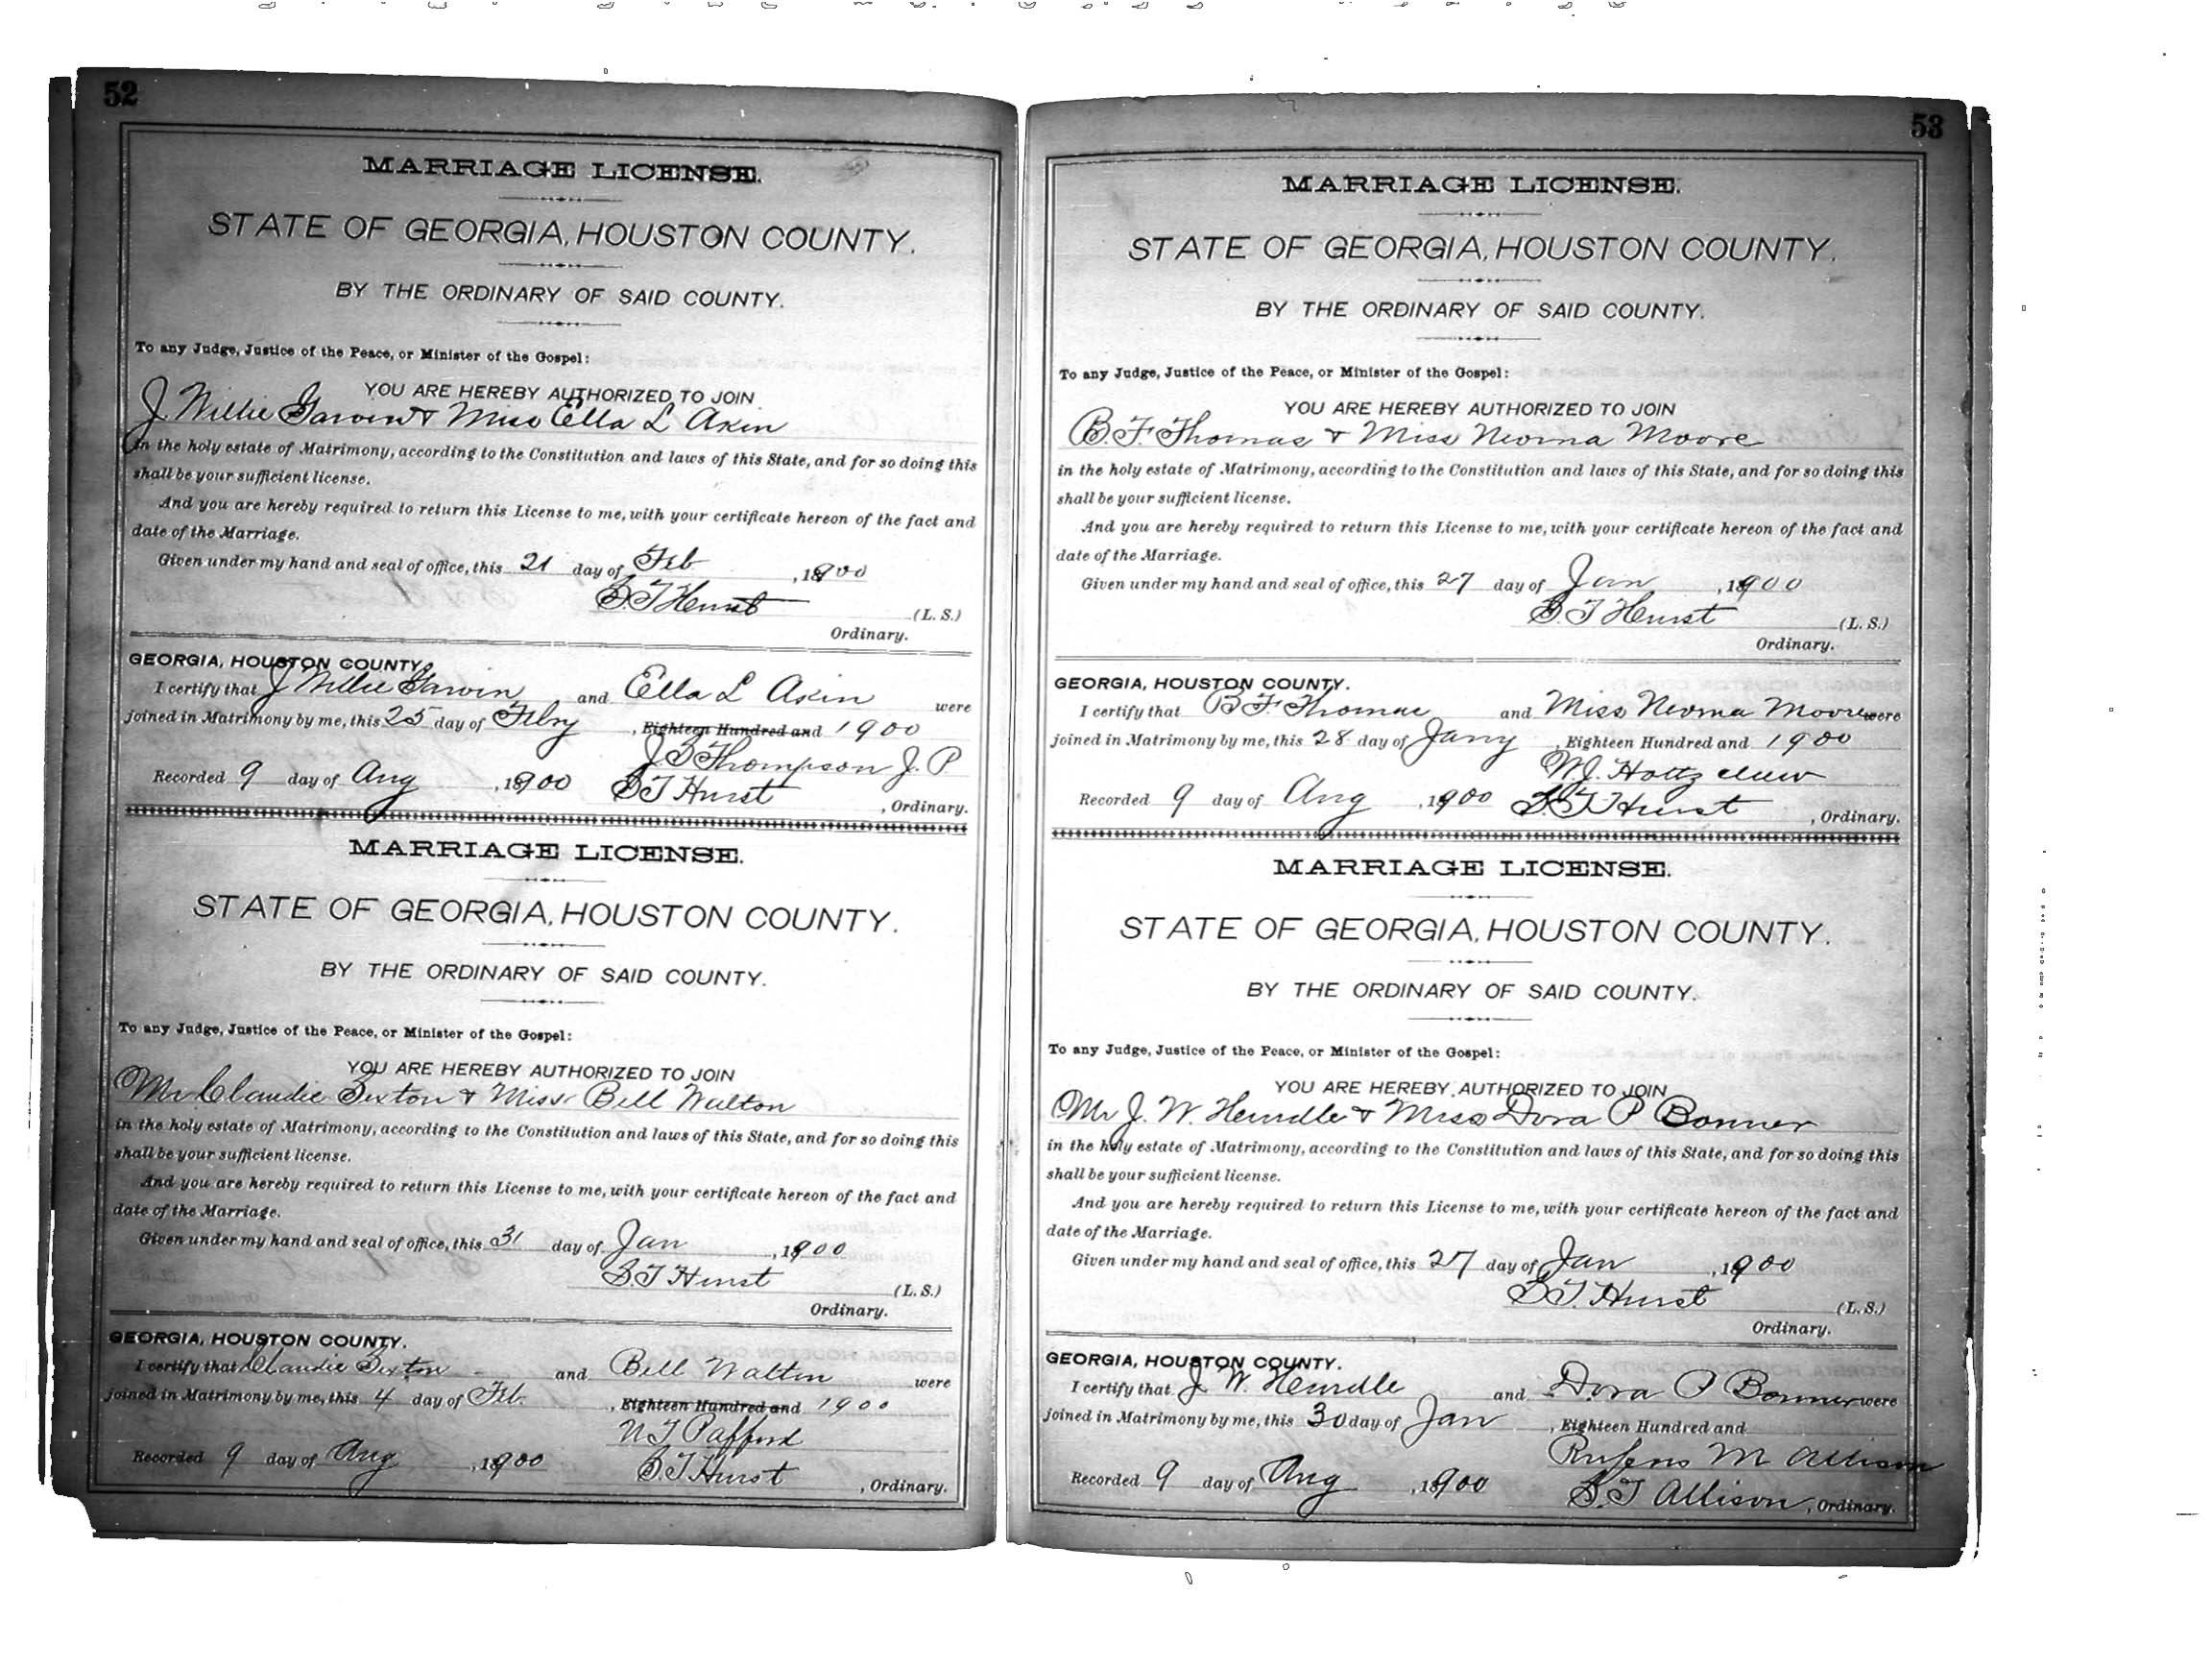 52
MARRIAGE LICENSE.
STATE OF GEORGIA, HOUSTON COUNTY.
BY THE ORDINARY OF SAID COUNTY.
To any Judge, Justice of the Peace, or Minister of the Gospel:
YOU ARE HEREBY AUTHORIZED TO JOIN
J. Willie Garvin & Miss Ella L Akin
in the holy estate of Matrimony, according to the Constitution and laws of this State, and for so doing this
shall be your sufficient license.
And you are hereby required to return this License to me, with your certificate hereon of the fact and
date of the Marriage.
Given under my hand and seal of office, this 21 day of Feb , 1900
S. T Hurst (L. S.)
Ordinary.
GEORGIA, HOUSTON COUNTY.
I certify that J Willie Garvin and Ella L Akin were
joined in Matrimony by me, this 25 day of Febry , Eighteen Hundred and 1900
J. S Thompson J. P
Recorded 9 day of Aug , 1900 S T Hurst , Ordinary.
MARRIAGE LICENSE.
STATE OF GEORGIA, HOUSTON COUNTY.
BY THE ORDINARY OF SAID COUNTY.
To any Judge, Justice of the Peace, or Minister of the Gospel:
YOU ARE HEREBY AUTHORIZED TO JOIN
Mr Claudie Sexton & Miss Bell Walton
in the holy estate of Matrimony, according to the Constitution and laws of this State, and for so doing this
shall be your sufficient license.
And you are hereby required to return this License to me, with your certificate hereon of the fact and
date of the Marriage.
Given under my hand and seal of office, this 31 day of Jan , 1900
S. T Hurst (L. S.)
Ordinary.
GEORGIA, HOUSTON COUNTY.
I certify that Claudie Sexton and Bell Walton were
joined in Matrimony by me, this 4 day of Feb. , Eighteen Hundred and 1900
N T Pafford
Recorded 9 day of Aug , 1900 S. T Hurst , Ordinary.
53
MARRIAGE LICENSE.
STATE OF GEORGIA, HOUSTON COUNTY.
BY THE ORDINARY OF SAID COUNTY.
To any Judge, Justice of the Peace, or Minister of the Gospel:
YOU ARE HEREBY AUTHORIZED TO JOIN
B. F. Thomas & Miss Neoma Moore
in the holy estate of Matrimony, according to the Constitution and laws of this State, and for so doing this
shall be your sufficient license.
And you are hereby required to return this License to me, with your certificate hereon of the fact and
date of the Marriage.
Given under my hand and seal of office, this 27 day of Jan , 1900
S. T Hurst (L. S.)
Ordinary.
GEORGIA, HOUSTON COUNTY.
I certify that B F Thomas and Miss Neoma Moore were
joined in Matrimony by me, this 28 day of Jany , Eighteen Hundred and 1900
W. J. Holtzclaw
Recorded 9 day of Aug , 1900 S. T Hurst , Ordinary.
MARRIAGE LICENSE.
STATE OF GEORGIA, HOUSTON COUNTY.
BY THE ORDINARY OF SAID COUNTY.
To any Judge, Justice of the Peace, or Minister of the Gospel:
YOU ARE HEREBY AUTHORIZED TO JOIN
Mr J. W. Hurdle & Miss Dora P Bonner
in the holy estate of Matrimony, according to the Constitution and laws of this State, and for so doing this
shall be your sufficient license.
And you are hereby required to return this License to me, with your certificate hereon of the fact and
date of the Marriage.
Given under my hand and seal of office, this 27 day of Jan , 1900
S. T. Hurst (L. S.)
Ordinary.
GEORGIA, HOUSTON COUNTY.
I certify that J. W. Hurdle and Dora P Bonner were
joined in Matrimony by me, this 30 day of Jan , Eighteen Hundred and
Rufens M Allison
Recorded 9 day of Aug , 1900 S. T Allison , Ordinary.